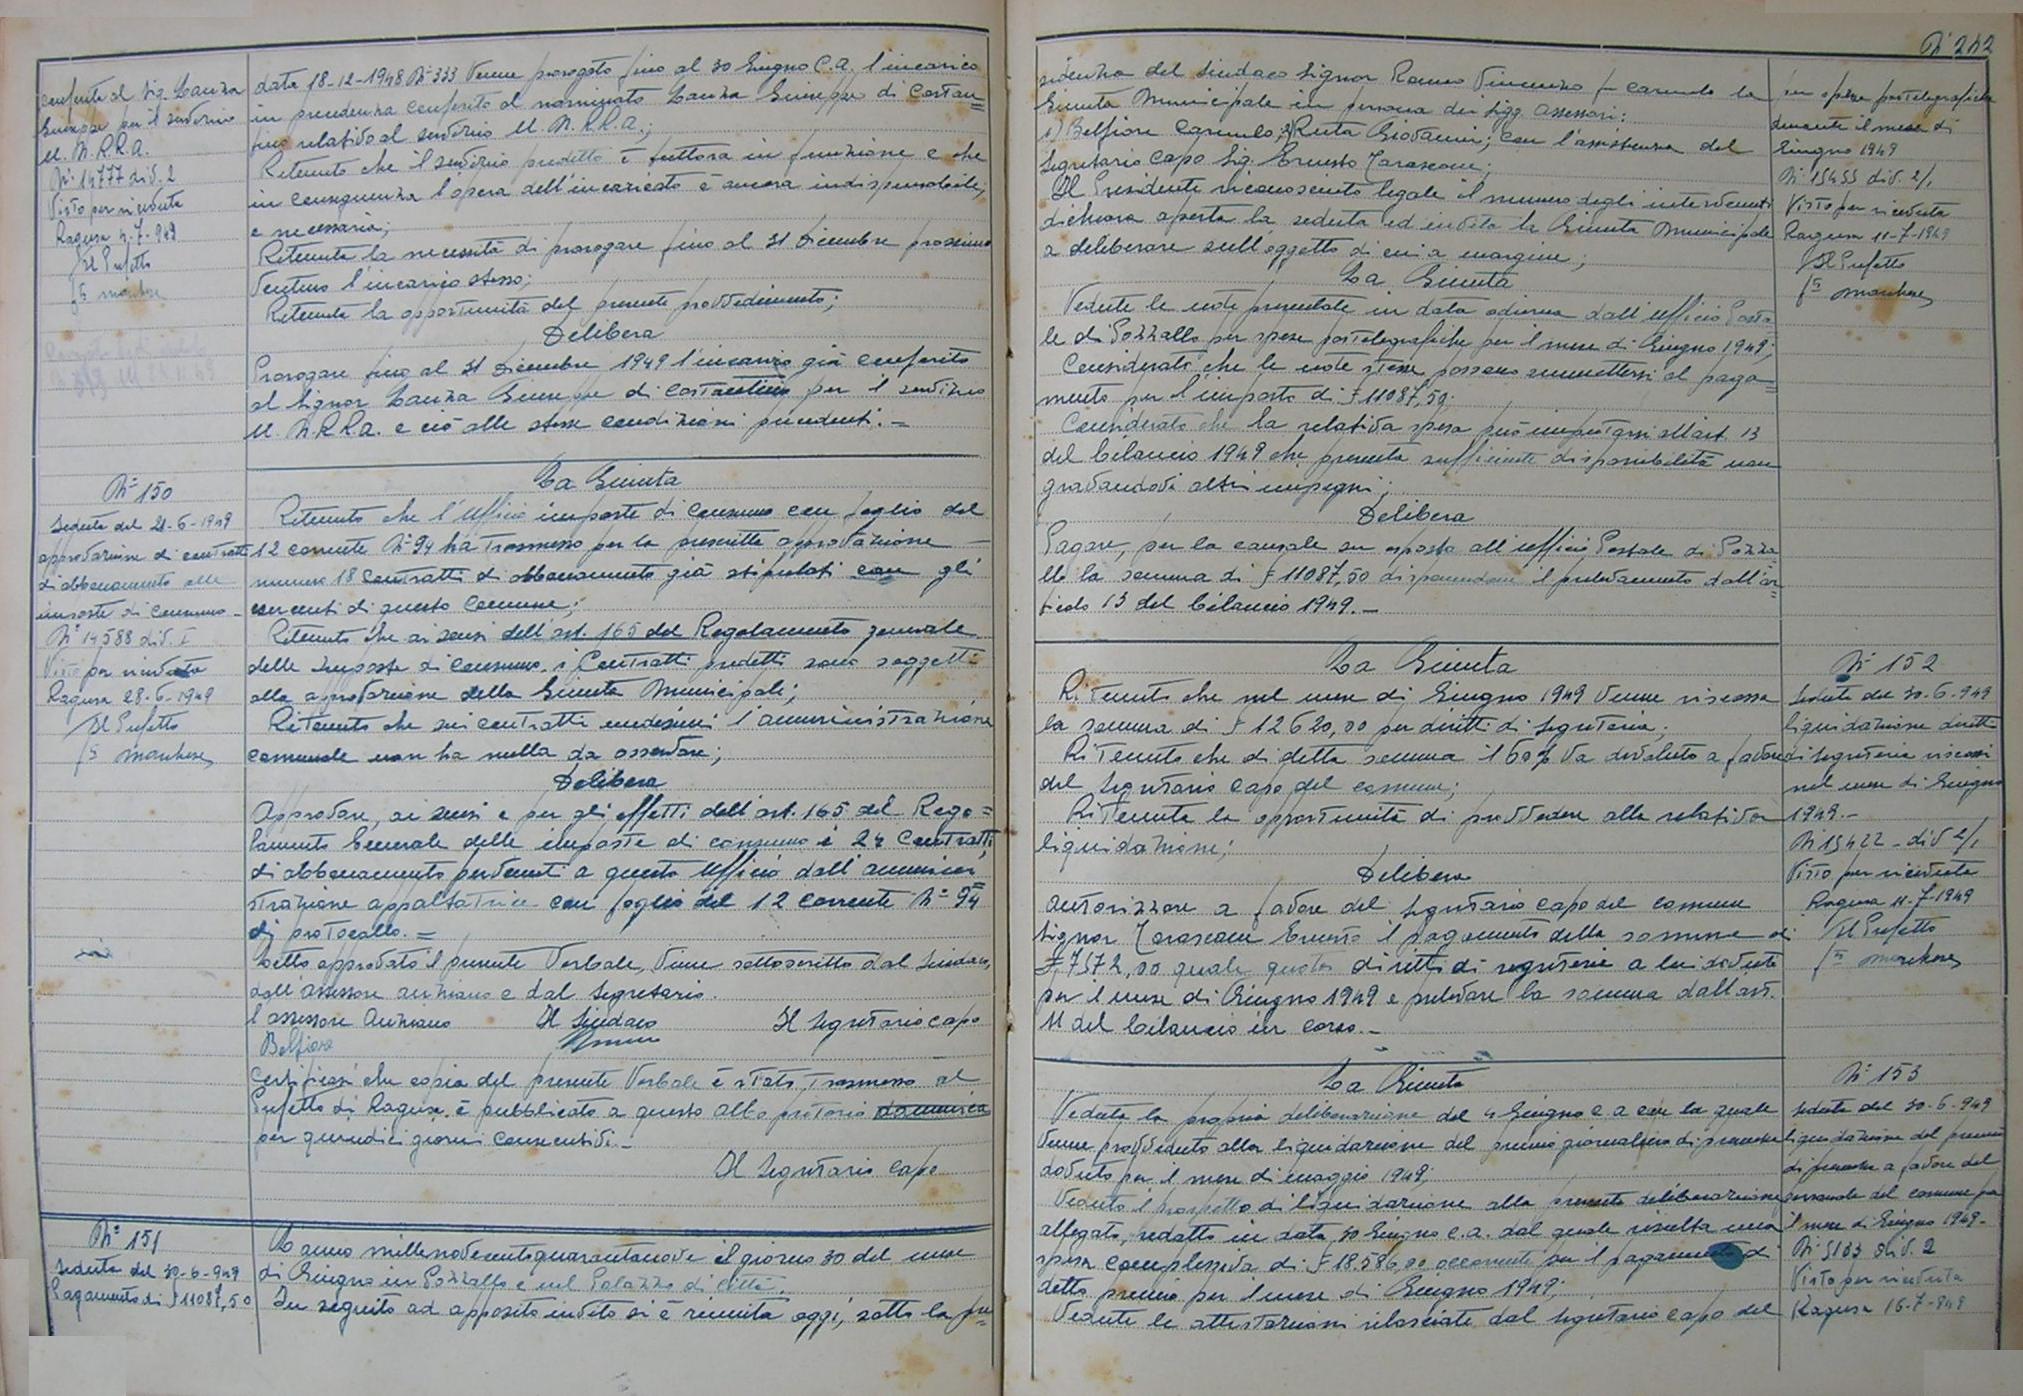 conferito al Sig. Lanza
Giuseppe per il servizio
U.N.R.R.A.
N° 14777 div. 2
Visto per ricevuta
Ragusa 4-7-949
Il Prefetto
fto Marchese
data 18-12-1948 N° 333 venne prorogato fino al 30 Giugno C.A. l'incarico
in precedenza conferito al nominato Lanza Giuseppe di Costan=
tino relativo al servizio U.N.R.R.A.;
Ritenuto che il servizio predetto è tuttora in funzione e che
in conseguenza l'opera dell'incaricato è ancora indispensabile,
e necessaria;
Ritenuta la necessità di prorogare fino al 31 Dicembre prossimo
venturo l'incarico stesso;
Ritenuta la opportunità del presente provvedimento;
Delibera
Prorogare fino al 31 Dicembre 1949 l'incarico già conferito
al Signor Lanza Giuseppe di Costantino per il servizio
U.N.R.R.A. e ciò alle stesse condizioni precedenti. =
N° 150
Seduta del 21-6-1949
approvazione di contratti
di abbonamento alle
imposte di consumo -
N° 14588 div. I
Visto per ricevuta
Ragusa 28-6-1949
Il Prefetto
fto Marchese
La Giunta
Ritenuto che l'Ufficio imposte di Consumo con foglio del
12 corrente N° 94 ha trasmesso per la prescritta approvazione -
numero 18 contratti di abbonamento già stipulati con gli
esercenti di questo Comune;
Ritenuto che ai sensi dell'art. 165 del Regolamento generale
delle Imposte di Consumo i Contratti predetti sono soggetti
alla approvazione della Giunta Municipale;
Ritenuto che sui contratti medesimi l'amministrazione
comunale non ha nulla da osservare;
Delibera
Approvare, ai sensi e per gli effetti dell'art. 165 del Rego=
lamento Generale delle imposte di consumo i 24 Contratti
di abbonamento pervenuti a questo Ufficio dall'ammini=
strazione appaltatrice con foglio del 12 corrente N° 94
di protocollo. =
Letto approvato il presente Verbale, viene sottoscritto dal Sindaco,
dall'assessore anziano e dal Segretario.
L'assessore Anziano Il Sindaco Il Segretario capo
Belfiore
Certificasi che copia del presente Verbale è stata trasmessa al
Prefetto di Ragusa, è pubblicato a questo albo pretorio domenica
per quindici giorni consecutivi. -
Il Segretario Capo
N° 151
Seduta del 30-6-949
Pagamento di £ 11087,50
L'anno millenovecentoquarantanove il giorno 30 del mese
di Giugno in Pozzallo e nel Palazzo di città.
In seguito ad apposito invito si è riunita oggi, sotto la pre=
N° 242
sidenza del Sindaco Signor Vincenzo la
Giunta Municipale in persona dei Sigg. Assessori:
1) Belfiore Carmelo, 2) Ruta Giovanni; con l'assistenza del
Segretario Capo Sig. Ernesto Tarascone;
Il Presidente riconosciuto legale il numero degli intervenuti
dichiara aperta la seduta ed invita la Giunta Municipale
a deliberare sull'oggetto di cui a margine;
La Giunta
Vedute le note presentate in data odierna dall'Ufficio Posta
le di Pozzallo per spese postelegrafiche per il mese di Giugno 1949;
Considerato che le note stesse possono ammettersi al paga=
mento per l'importo di £ 11087,50.
Considerato che la relativa spesa può imputarsi all'art. 13
del bilancio 1949 che presenta sufficiente disponibilità non
gravandovi altri impegni;
Delibera
Pagare, per la causale su esposta all'Ufficio Postale di Pozza
llo la somma di £ 11087,50 disponendone il prelevamento dall'ar
ticolo 13 del bilancio 1949. -
in spese postelegrafiche
durante il mese di
Giugno 1949
N° 15453 div. 2/1
Visto per ricevuta
Ragusa 11-7-1949
Il Prefetto
fto Marchese
La Giunta
Ritenuto che nel mese di Giugno 1949 venne riscossa
la somma di £ 12620,00 per diritti di Segreteria;
Ritenuto che di detta somma il 60% va devoluto a favore
del Segretario Capo del Comune;
Ritenuta la opportunità di provvedere alla relativa
liquidazione;
Delibera
Autorizzare a favore del Segretario Capo del Comune
Signor Tarascone Ernesto il pagamento della somma di
£ 7572,00 quale quota diritti di segreteria a lui dovuta
per il mese di Giugno 1949 e prelevare la somma dall'art.
11 del bilancio in corso. -
N° 152
Seduta del 30-6-949
liquidazione diritti
di segreteria riscossi
nel mese di Giugno
1949. -
N° 15422 - div 2/1
Visto per ricevuta
Ragusa 11-7-1949
Il Prefetto
fto Marchese
La Giunta
Veduta la propria deliberazione del 4 Giugno c.a con la quale
venne provveduto alla liquidazione del premio giornaliero di presenza
dovuto per il mese di maggio 1949;
Veduto il prospetto di liquidazione alla presente deliberazione
allegato, redatto in data 30 Giugno c.a. dal quale risulta una
spesa complessiva di £ 18.586,00 occorrente per il pagamento di
detto premio per il mese di Giugno 1949;
Vedute le attestazioni rilasciate dal Segretario Capo del
N° 153
Seduta del 30-6-949
liquidazione del premio
di presenza a favore del
personale del comune per
il mese di Giugno 1949-
N° 5133 div. 2
Visto per ricevuta
Ragusa 16-7-949